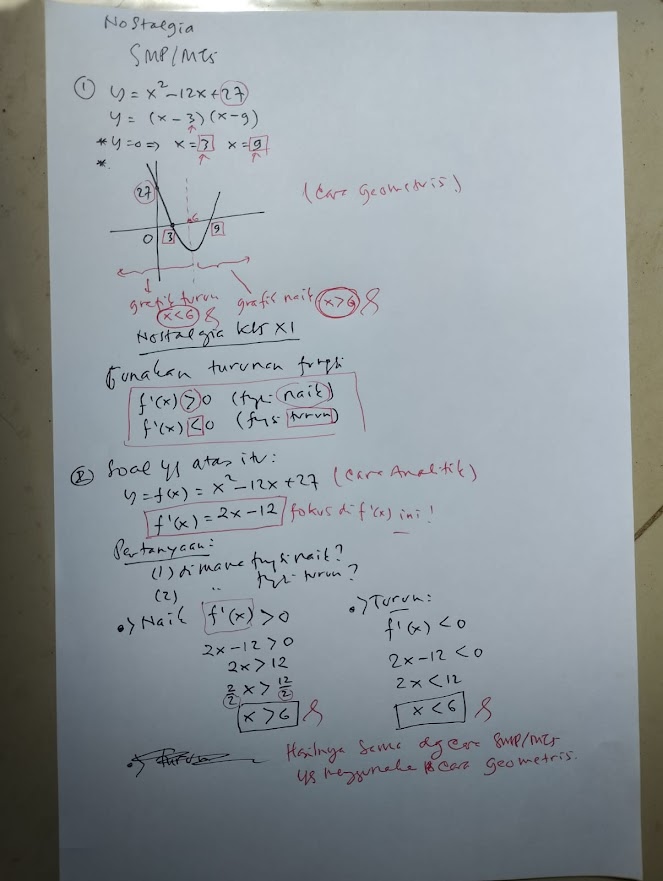 Nostalgia
SMP/MTs
① y = x² - 12x + 27
y = (x - 3)(x - 9)
* y=0 => x = 3 x = 9
*.
(Cara Geometris)
27
6
0 3 9
grafik turun grafik naik x>6
x<6
Nostalgia kls XI
Gunakan turunan fungsi
f'(x) > 0 (fgsi naik)
f'(x) < 0 (fgsi turun)
② Soal yg atas itu:
y = f(x) = x² - 12x + 27 (Cara Analitik)
f'(x) = 2x - 12 fokus di f'(x) ini!
Pertanyaan:
(1) dimana fungsi naik?
(2) " fgsi turun?
•> Naik f'(x) > 0
2x - 12 > 0
2x > 12
2/2 x > 12/2
x > 6
•> Turun:
f'(x) < 0
2x - 12 < 0
2x < 12
x < 6
•> Turun
Hasilnya sama dg cara SMP/MTs
yg menggunakan cara geometris.